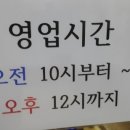 영업시간
오전 10시부터 ~
오후 12시까지